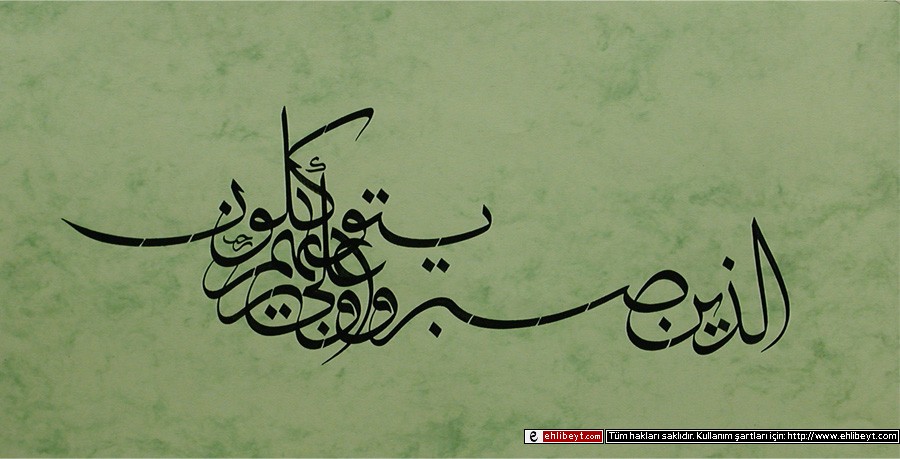 الذين صبروا وعلى ربهم يتوكلون
ehlibeyt.com Tüm hakları saklıdır. Kullanım şartları için: http://www.ehlibeyt.com